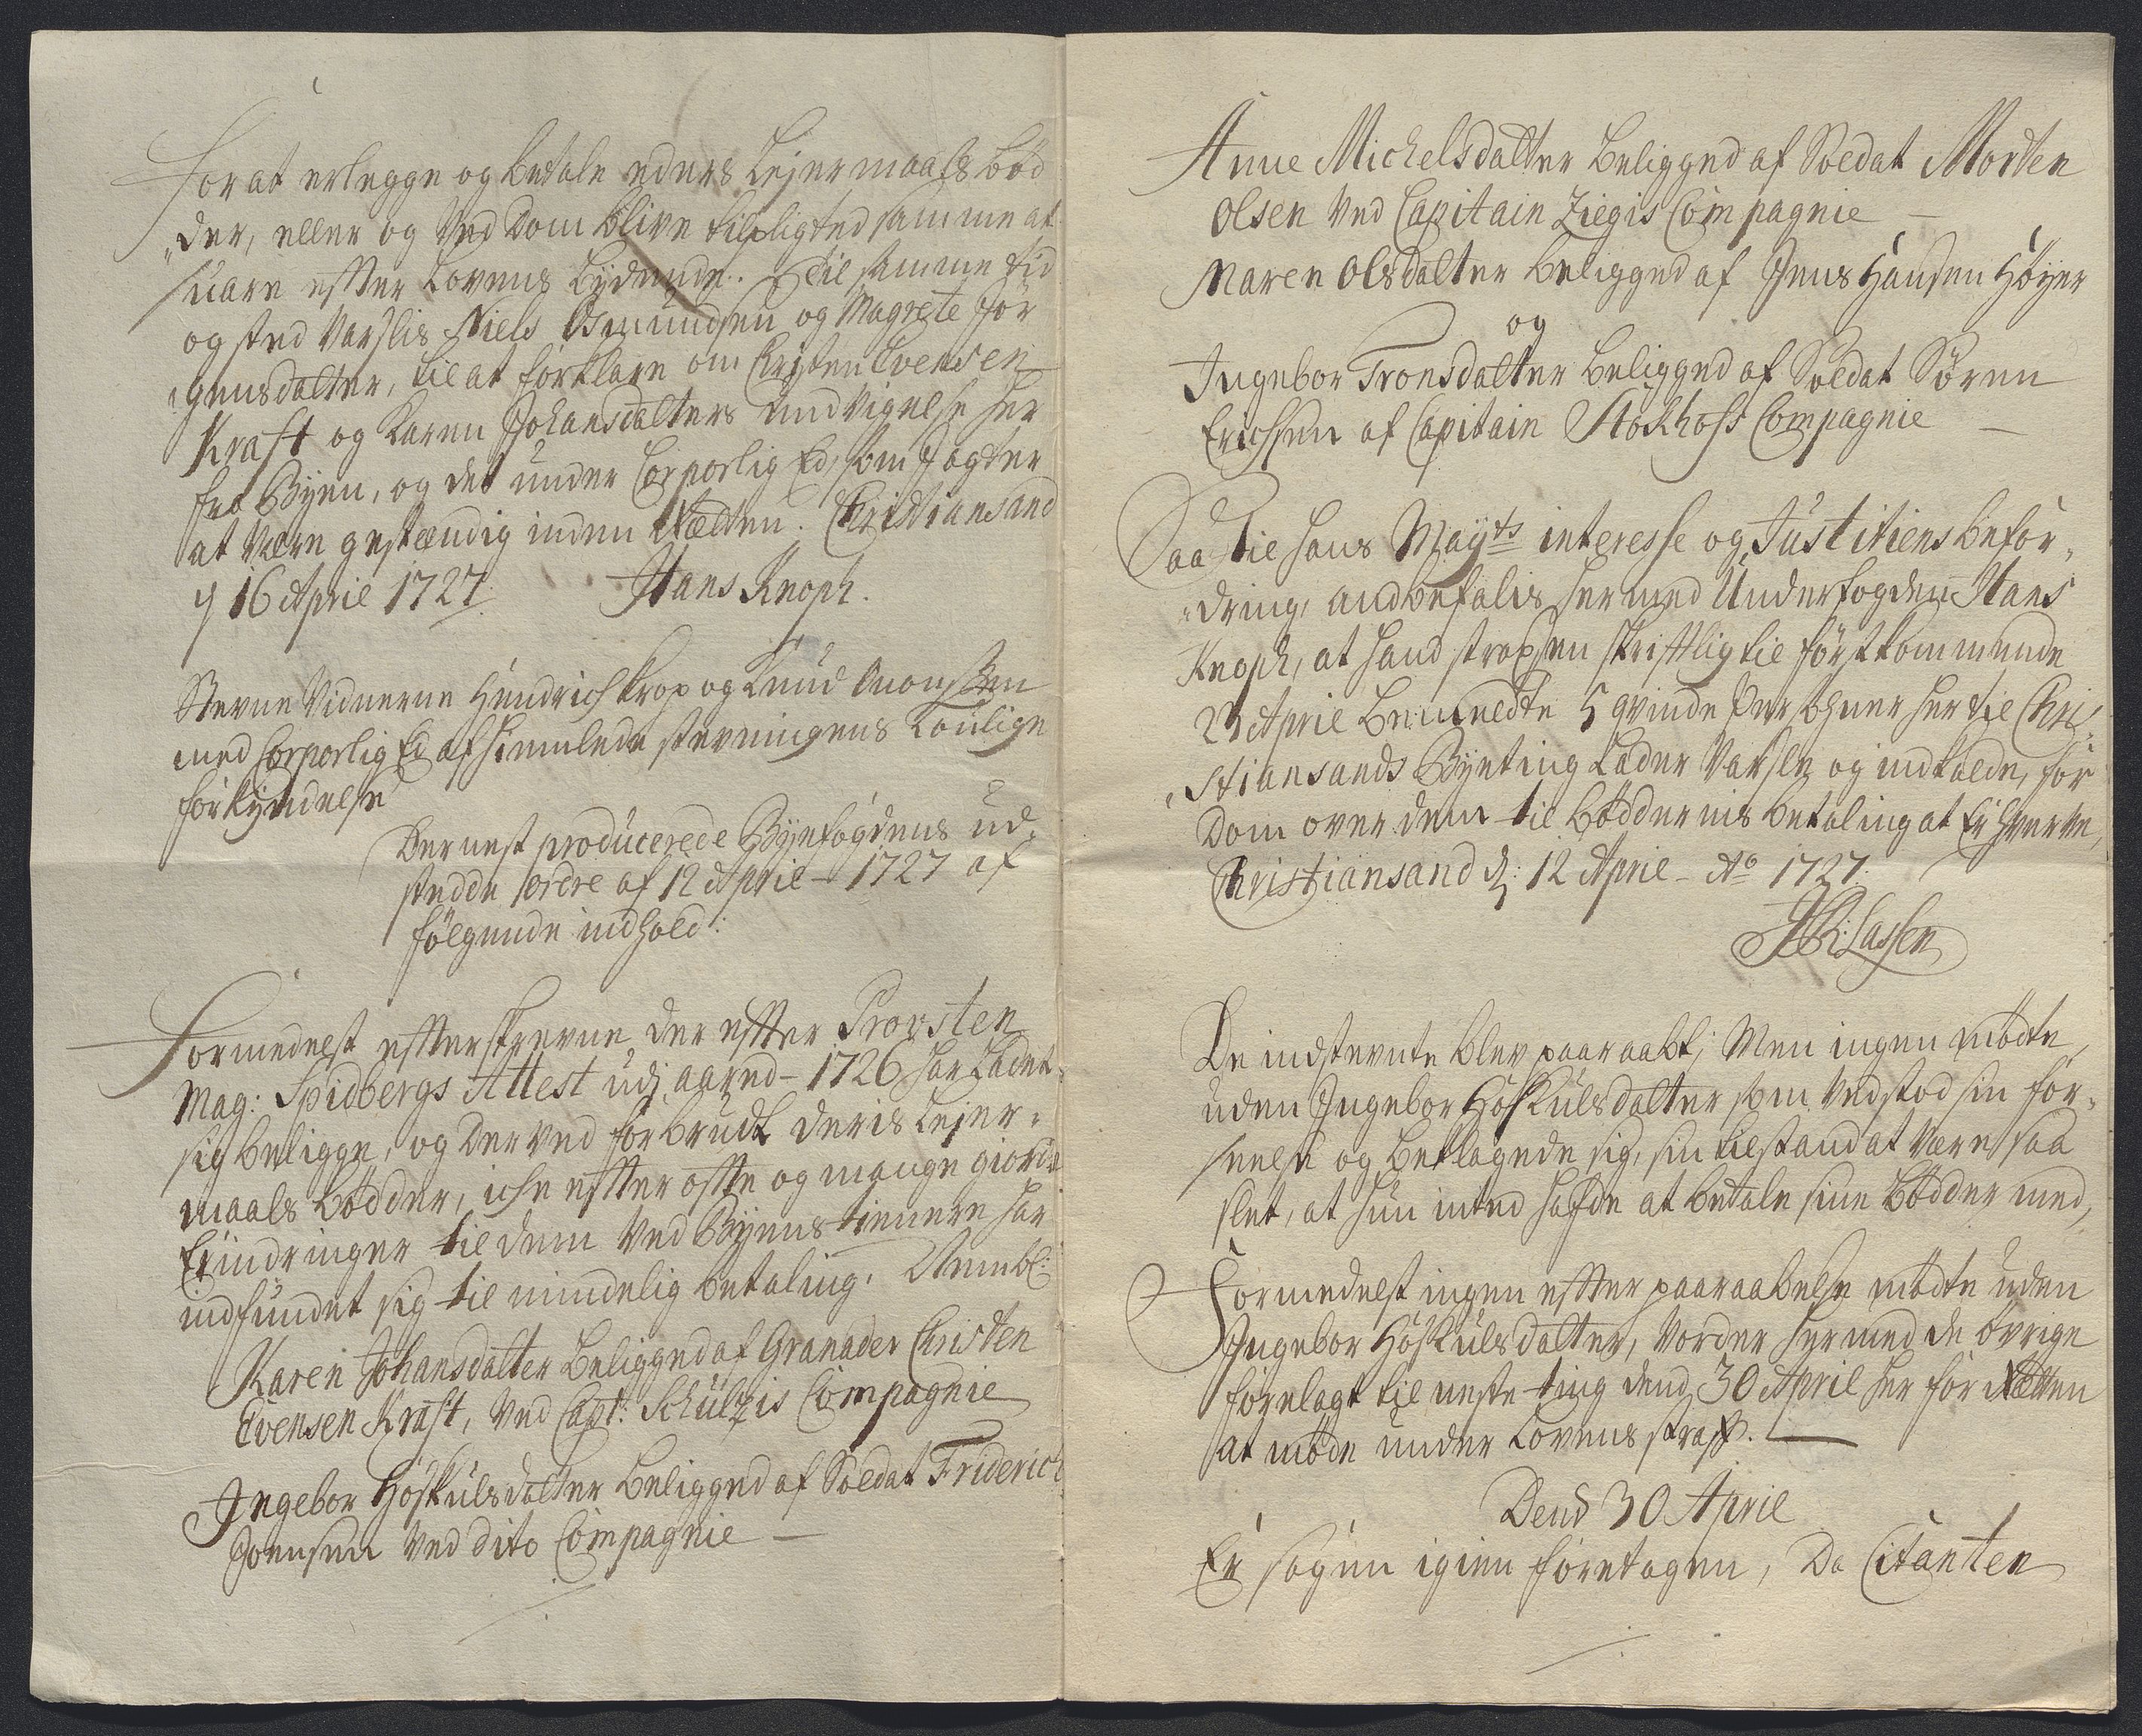 For at erlegge og betale eders Lejermaals bød
„der, eller og ved Dom blive tilpligted samme at
suare efter Lovens Lydende. Til samme tid
og sted Varslis Niels Osmundsen og Magrete Jør
„gensdatter, til at forklare om Christen Evensen
Kraft og Karen Johansdatters undvigelse her
fra Byen, og det under Corporlig Ed, som I agter
at være gestændig inden Rætten. Christiansand
d 16 April 1727. Hans Knoph.
Stevne Vidnerne Hendrich Krop og Knud Aanonsen
med Corporlig Ed afhiemlede stevningens Lovlige
forkyndelse
Dernest producerede Byefogdens ud„
stedde ordre af 12 April 1727 af
følgende indhold:
Formedelst efterskrevne der efter Provsten
Mag: Spidbergs Attest udj aared 1726 har Ladet
sig beligge, og derved forbrudt deris Lejer„
maals bødder, iche efter ofte og mange giorde
Erindringer til dem ved Byens tienere har
indfundet sig til mindelig betaling. Nembl:
Karen Johansdatter beligged af Granader Christen
Evensen Kraft, ved Capt: Schultzis Compagnie
Ingebor Høskulsdatter beligged af Soldat Friderich
Joensen ved dito Compagnie —
Anne Michelsdatter beligged af Soldat Morten
Olsen ved Capitain Ziegis Compagnie —
Maren Olsdatter beligged af Jens Hansen Høyer
og
Ingebor Tronsdatter beligged af Soldat Søren
Erichsen af Capitain Stokhofs Compagnie —
Saa til hans Mayts interesse og Justitiens befor„
„dring, andbefalis hermed Underfogden Hans
Knoph, at hand straxsen skriftlig til førstkommende
23 April bemeldte 5 qvinde Persohner her til Chri„
„stiansands Byeting Lader Varsle og indkalde, for
Dom over dem til bøddernis betaling at Erhverve,
Christiansand d: 12 April Ao 1727.
JChr: Lassen
De indstevnte blev paaraabt; Men ingen mødte,
uden Ingebor Høskulsdatter som vedstod sin for„
seelse og beklagede sig, sin tilstand at være saa
slet, at hun inted hafde at betale sine bødder med,
Formedelst ingen efter paaraabelse mødte uden
Ingebor Høskulsdatter, vorder hermed de øvrige
forelagt til neste ting dend 30 April her for Rætten
at møde under Lovens straf. —
Dend 30 April
Er sagen igien foretagen, Da Citanten